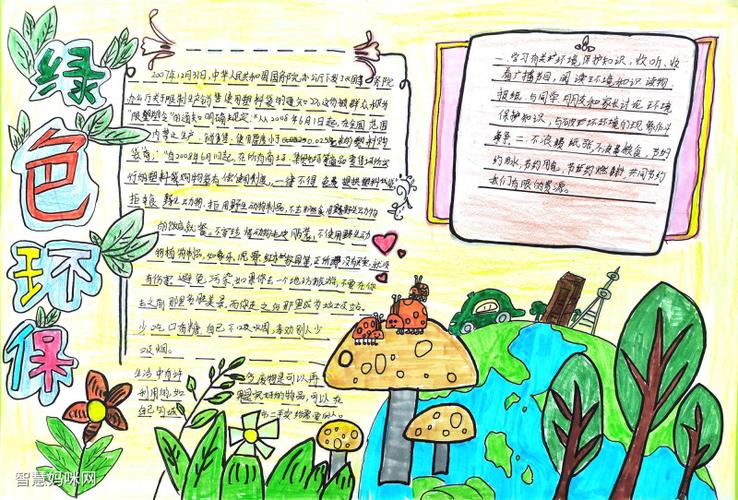 绿色环保
2007年12月31日,中华人民共和国国务院办公厅下发了《国务院
办公厅关于限制生产销售使用塑料袋的通知》。这份被群众称为
"限塑令"的通知明确规定:"从2008年6月1日起,在全国范围
内禁止生产、销售、使用厚度小于0.025毫米的塑料购
物袋";"自2008年6月1日起,在所有商品零售场所实
行塑料袋购物袋有偿使用制度,一律不得免费提供塑料购物袋"
拒食野生动物,拒用野生动物制品,不去
不穿
不使用野生动
物植物制品,如象牙、虎骨
有伤害 避免污染 如果你去一个地方旅游,不要在你
去之前那里是美景,而你走之后那里成为垃圾
少吃口香糖,自己不吸烟,奉劝别人少
吸烟。
生活中有许多废物是可以再
利用的,如
的物品,可以在
自己的
一、学习有关环境保护知识,收听、收
看广播节目,阅读环境知识读物、
报纸,与同学朋友和家长讨论环境
保护知识,与破坏环境的现象作斗
争。二、不浪费纸张不浪费粮食,节约
用水,节约用电,节约燃料,共同节约
我们有限的资源。
智慧妈咪网